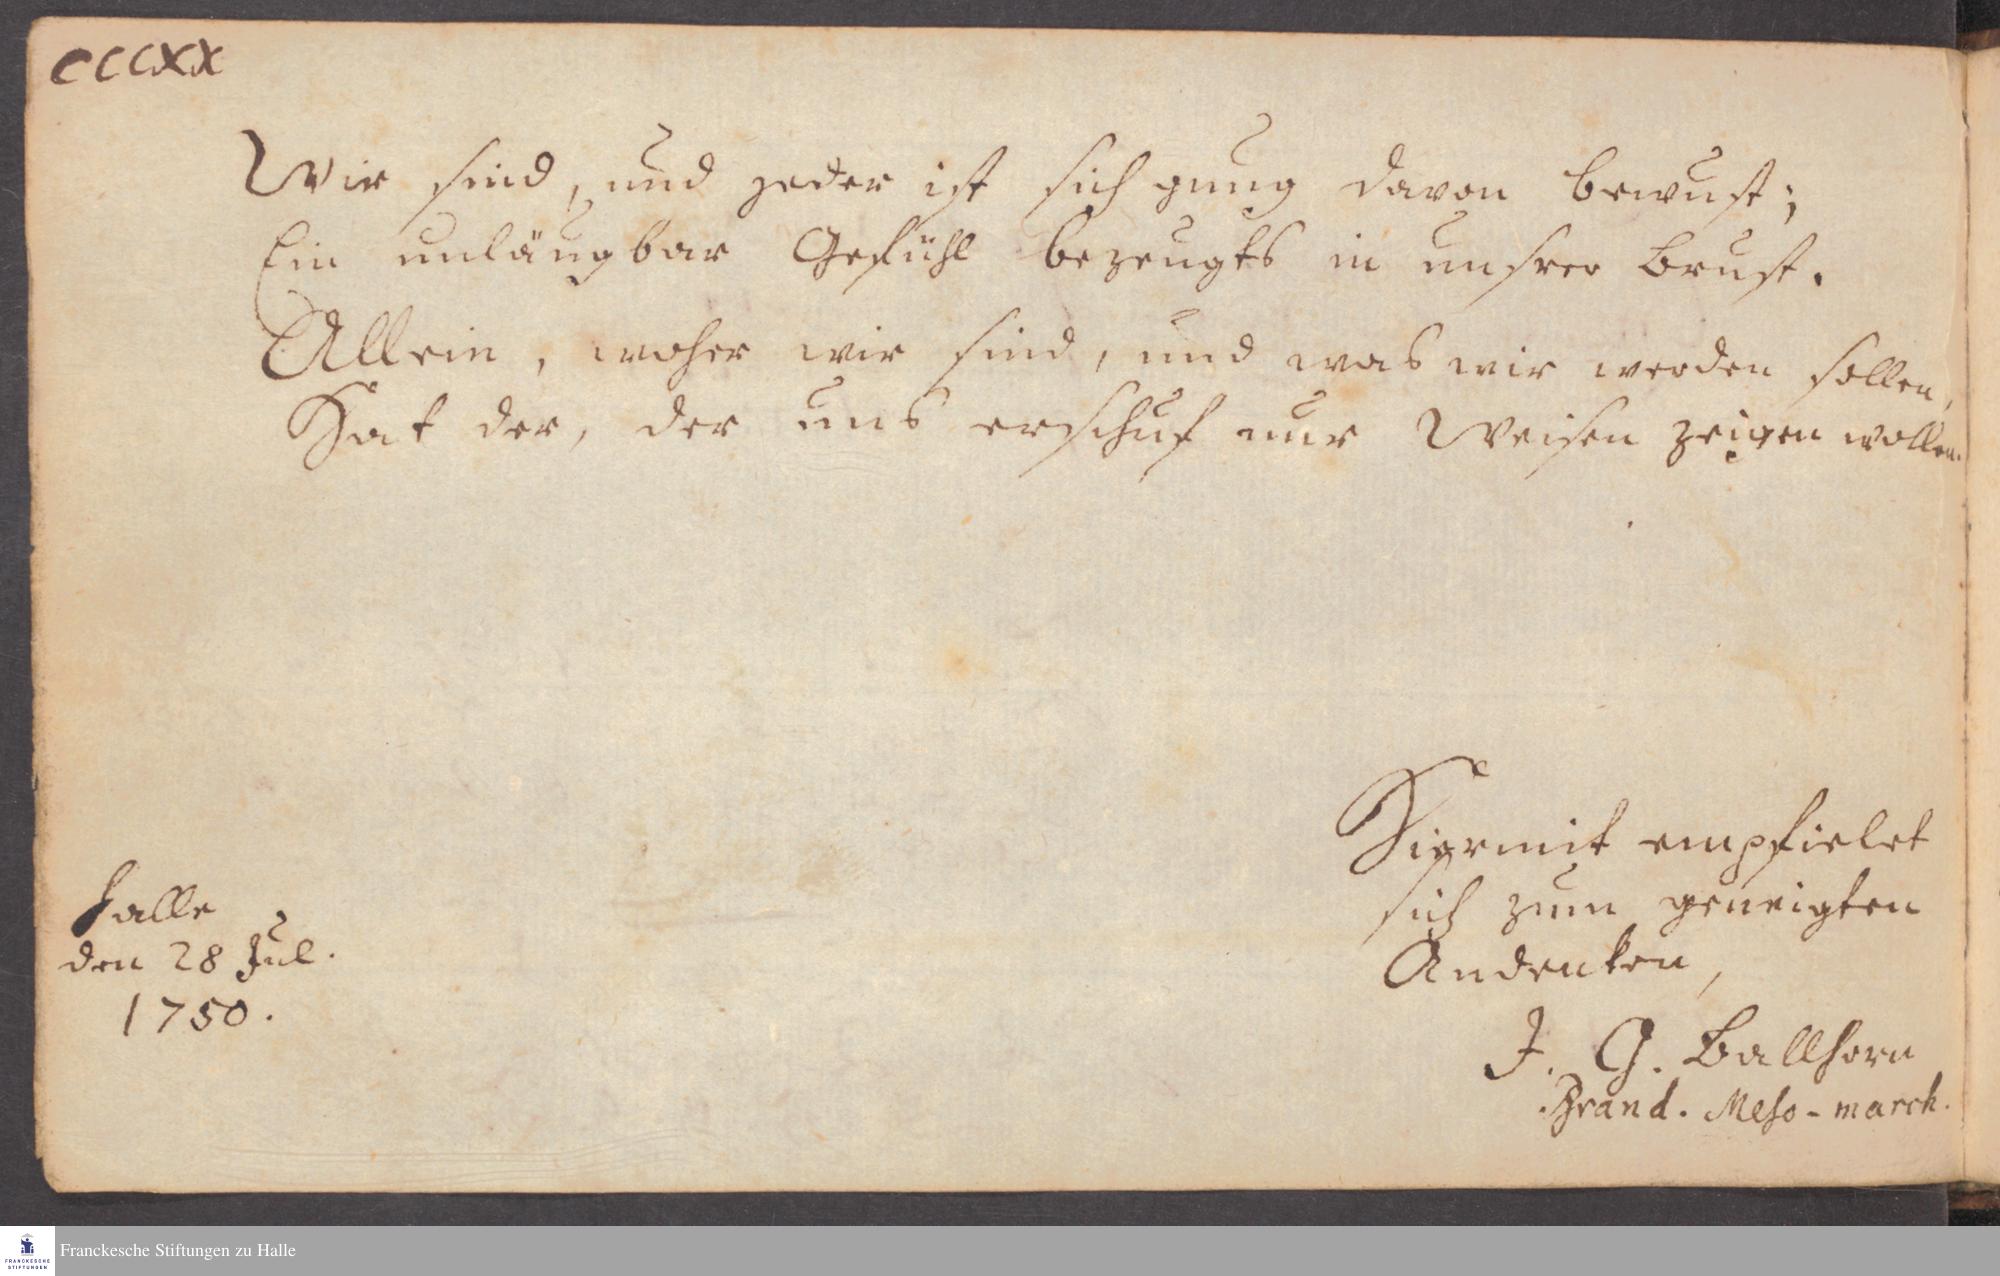 CCCXX
Wir sind, und jeder ist sich gnug davon bewust;
Ein unläugbar Gefühl bezeugts in unsrer Brust.
Allein, woher wir sind, und was wir werden sollen,
Hat der, der uns erschuf nur Weisen zeigen wollen.
Halle
den 28 Jul.
1750.
Hiermit empfielet
sich zum geneigten
Andenken,
J. G. Ballhorn
Brand. Meso-march.
Franckesche Stiftungen zu Halle
FRANCKESCHE
STIFTUNGEN